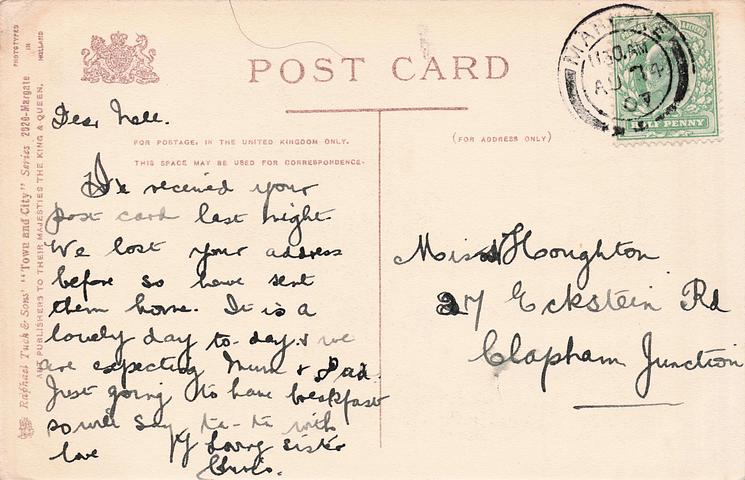 POST CARD
FOR POSTAGE, IN THE UNITED KINGDOM ONLY,
THIS SPACE MAY BE USED FOR CORRESPONDENCE.
(FOR ADDRESS ONLY)
PHOTOTYPED
IN
HOLLAND
Raphael Tuck & Sons' "Town and City" Series 2020-Margate
ART PUBLISHERS TO THEIR MAJESTIES THE KING & QUEEN.
MARGATE
11 30 AM
AU 14
07
HALF PENNY
Dear Nell.
We received your
post card last night
We lost your address
before so have sent
them home. It is a
lovely day to-day & we
are expecting Mum & Dad.
Just going to have breakfast
so will say ta-ta with
love Yr loving sister
Miss N Houghton
27 Eckstein Rd
Clapham Junction